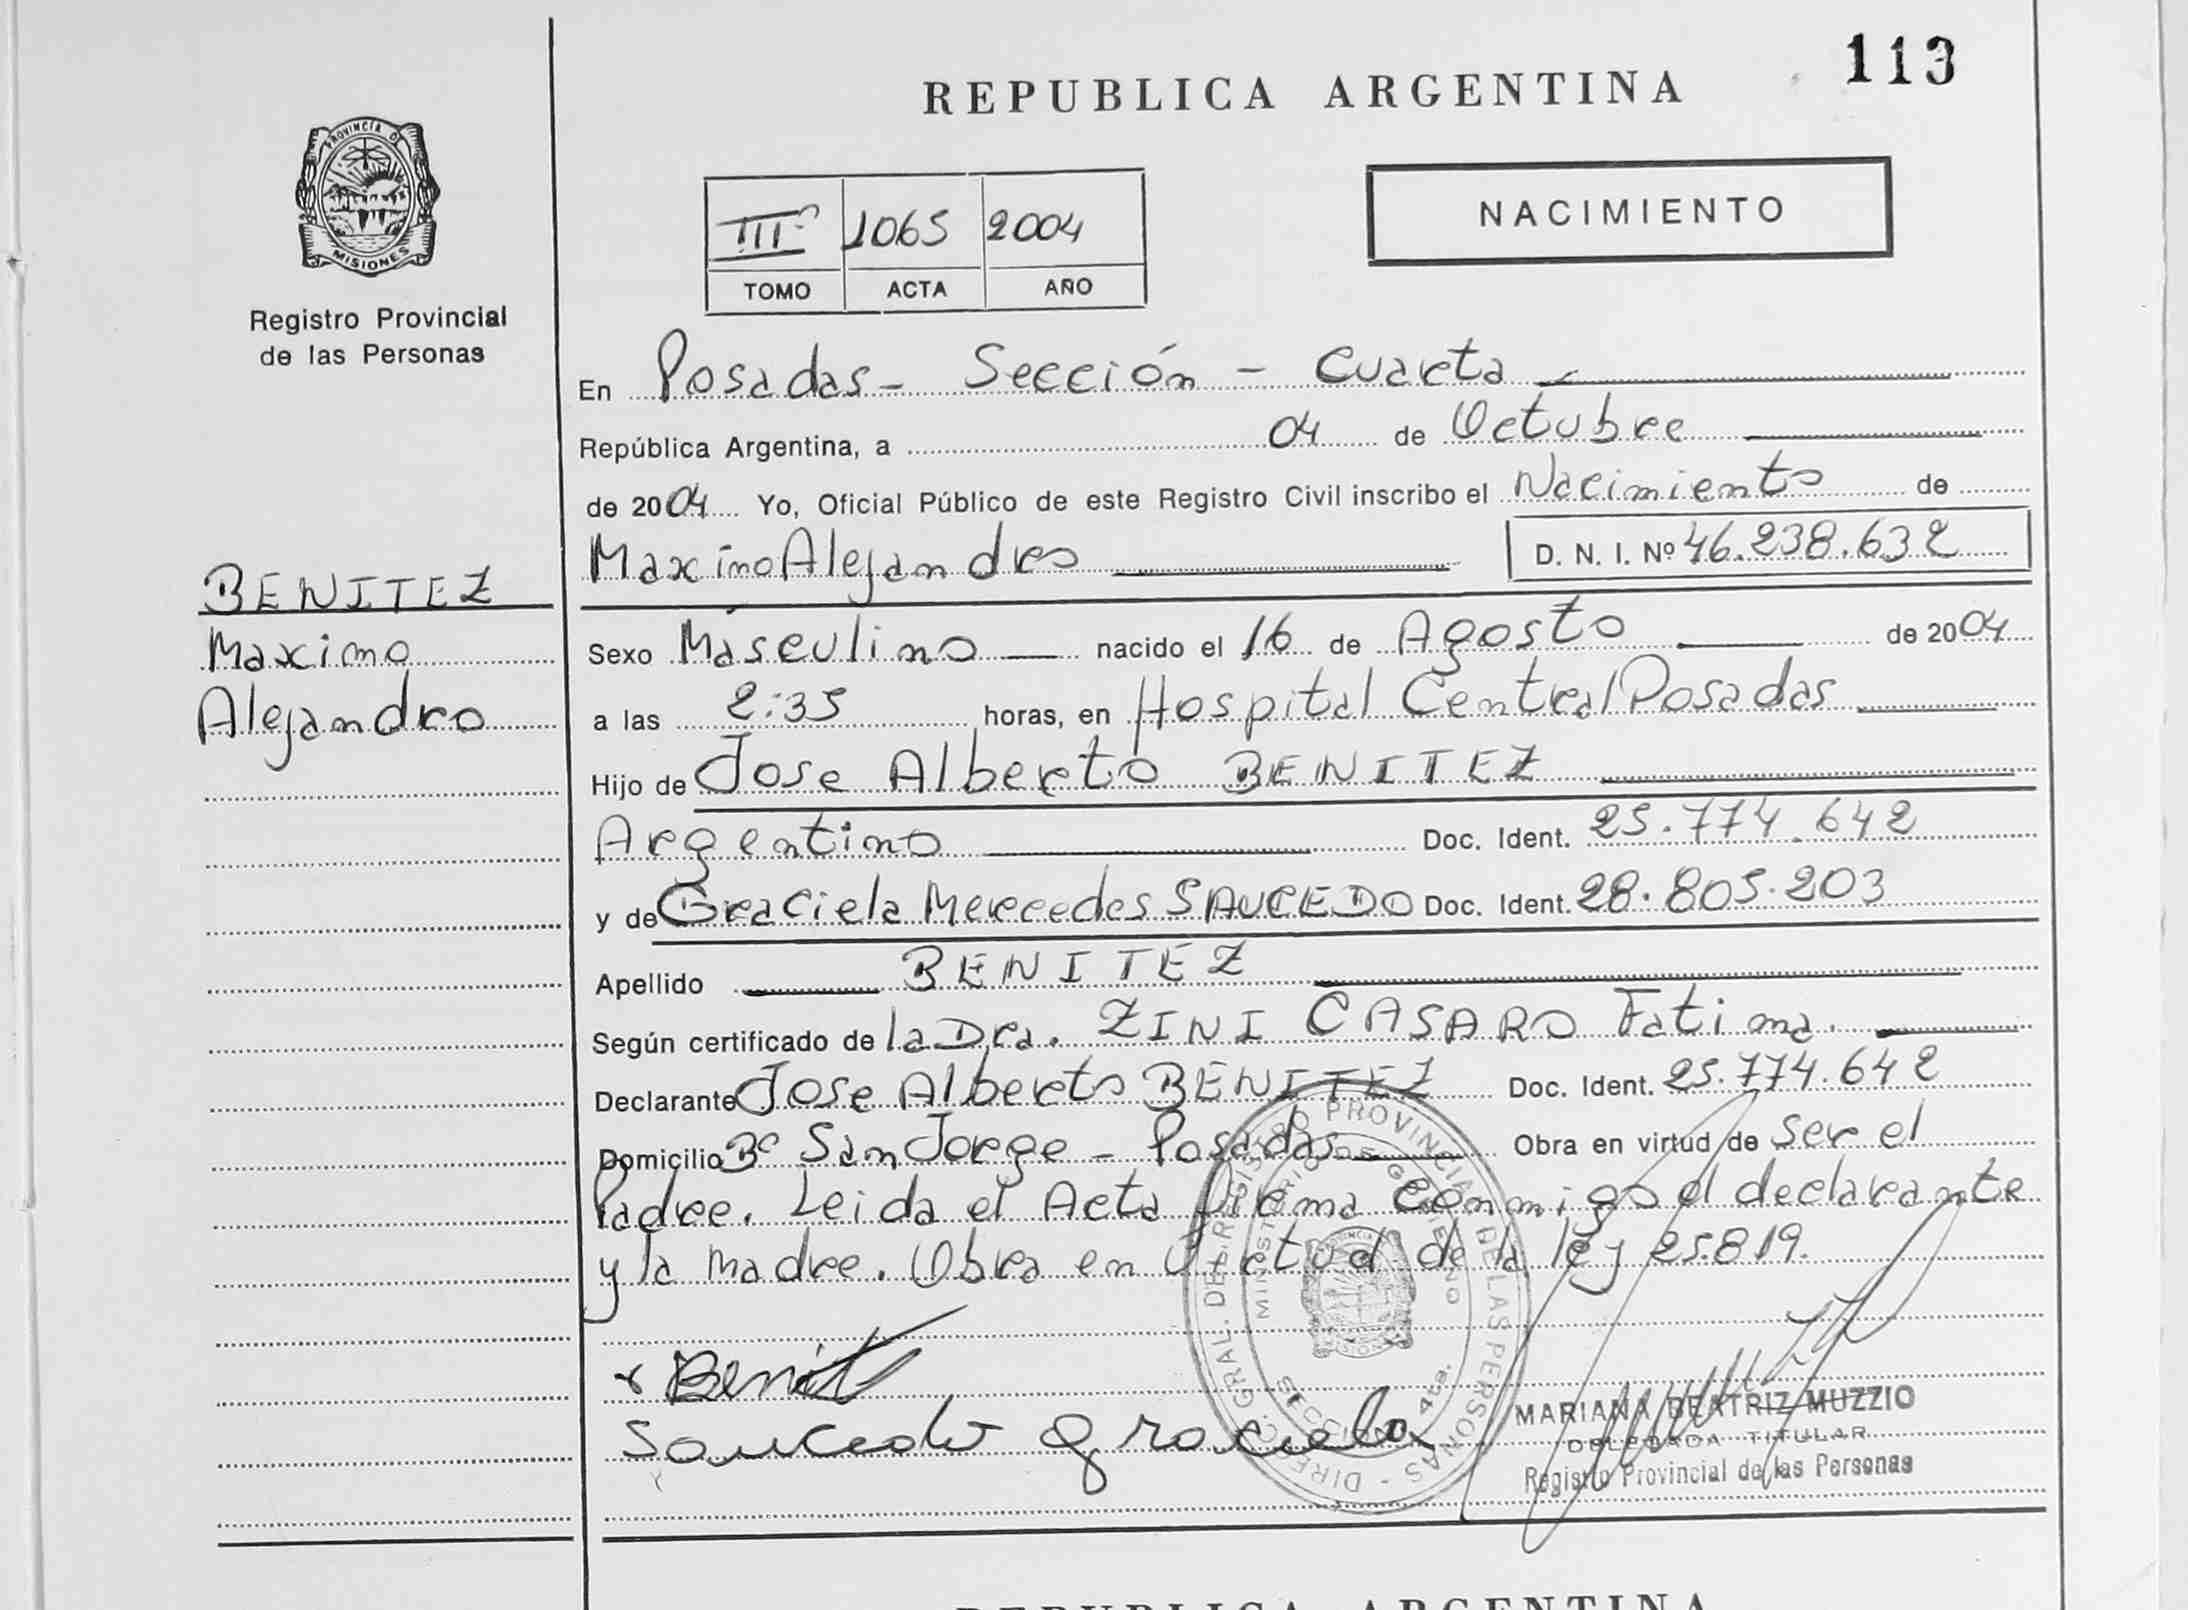 113
REPUBLICA ARGENTINA
PROVINCIA DE
MISIONES
Registro Provincial
de las Personas
NACIMIENTO
III 1065 2004
TOMO ACTA AÑO
En Posadas - Sección - Cuarta
República Argentina, a 04 de Octubre
de 2004 Yo, Oficial Público de este Registro Civil inscribo el Nacimiento de
Maximo Alejandro D. N. I. Nº 46.238.632
BENITEZ
Maximo
Alejandro
Sexo Masculino nacido el 16 de Agosto de 2004
a las 2:35 horas, en Hospital Central Posadas
Hijo de Jose Alberto BENITEZ
Argentino Doc. Ident. 25.774.642
y de Graciela Mercedes SAUCEDO Doc. Ident. 28.805.203
Apellido BENITEZ
Según certificado de la Dra. ZINI CASARO Fatima.
Declarante Jose Alberto BENITEZ Doc. Ident. 25.774.642
Domicilio Bº San Jorge - Posadas Obra en virtud de ser el
Padre. Leida el Acta Firma conmigo el declarante
y la madre. Obra en Virtud de la ley 25.819.
DIREC. GRAL. DEL REGISTRO PROVINCIAL DE LAS PERSONAS
MINISTERIO DE GOBIERNO
SECCION 4ta.
Benit
Saucedo graciela
MARIANA BEATRIZ MUZZIO
DELEGADA TITULAR
Registro Provincial de las Personas
REPUBLICA ARGENTINA